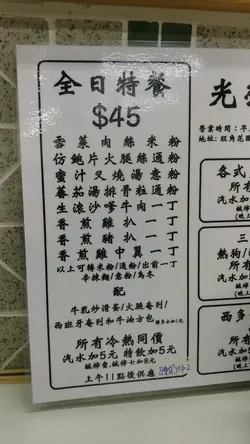 全日特餐
$45
雪菜肉絲米粉
仿鮑片火腿絲通粉
蜜汁叉燒湯意粉
蕃茄湯排骨粒通粉
生滾沙爹牛肉一丁
香煎雞扒一丁
香煎豬扒一丁
香煎雞中翼一丁
以上可轉米粉/通粉/出前一丁
辛辣麵/意粉/烏冬
配
牛乳炒滑蛋/火腿奄列/
西班牙奄列和牛油方包
所有冷熱同價
汽水加5元 特飲加5元
鹹檸蜜,鹹檸七加8元
上午11點後供應
光
營業時間：早
地址：旺角花園
各式
所有
汽水加
三
熱狗/
所有
西多
所有